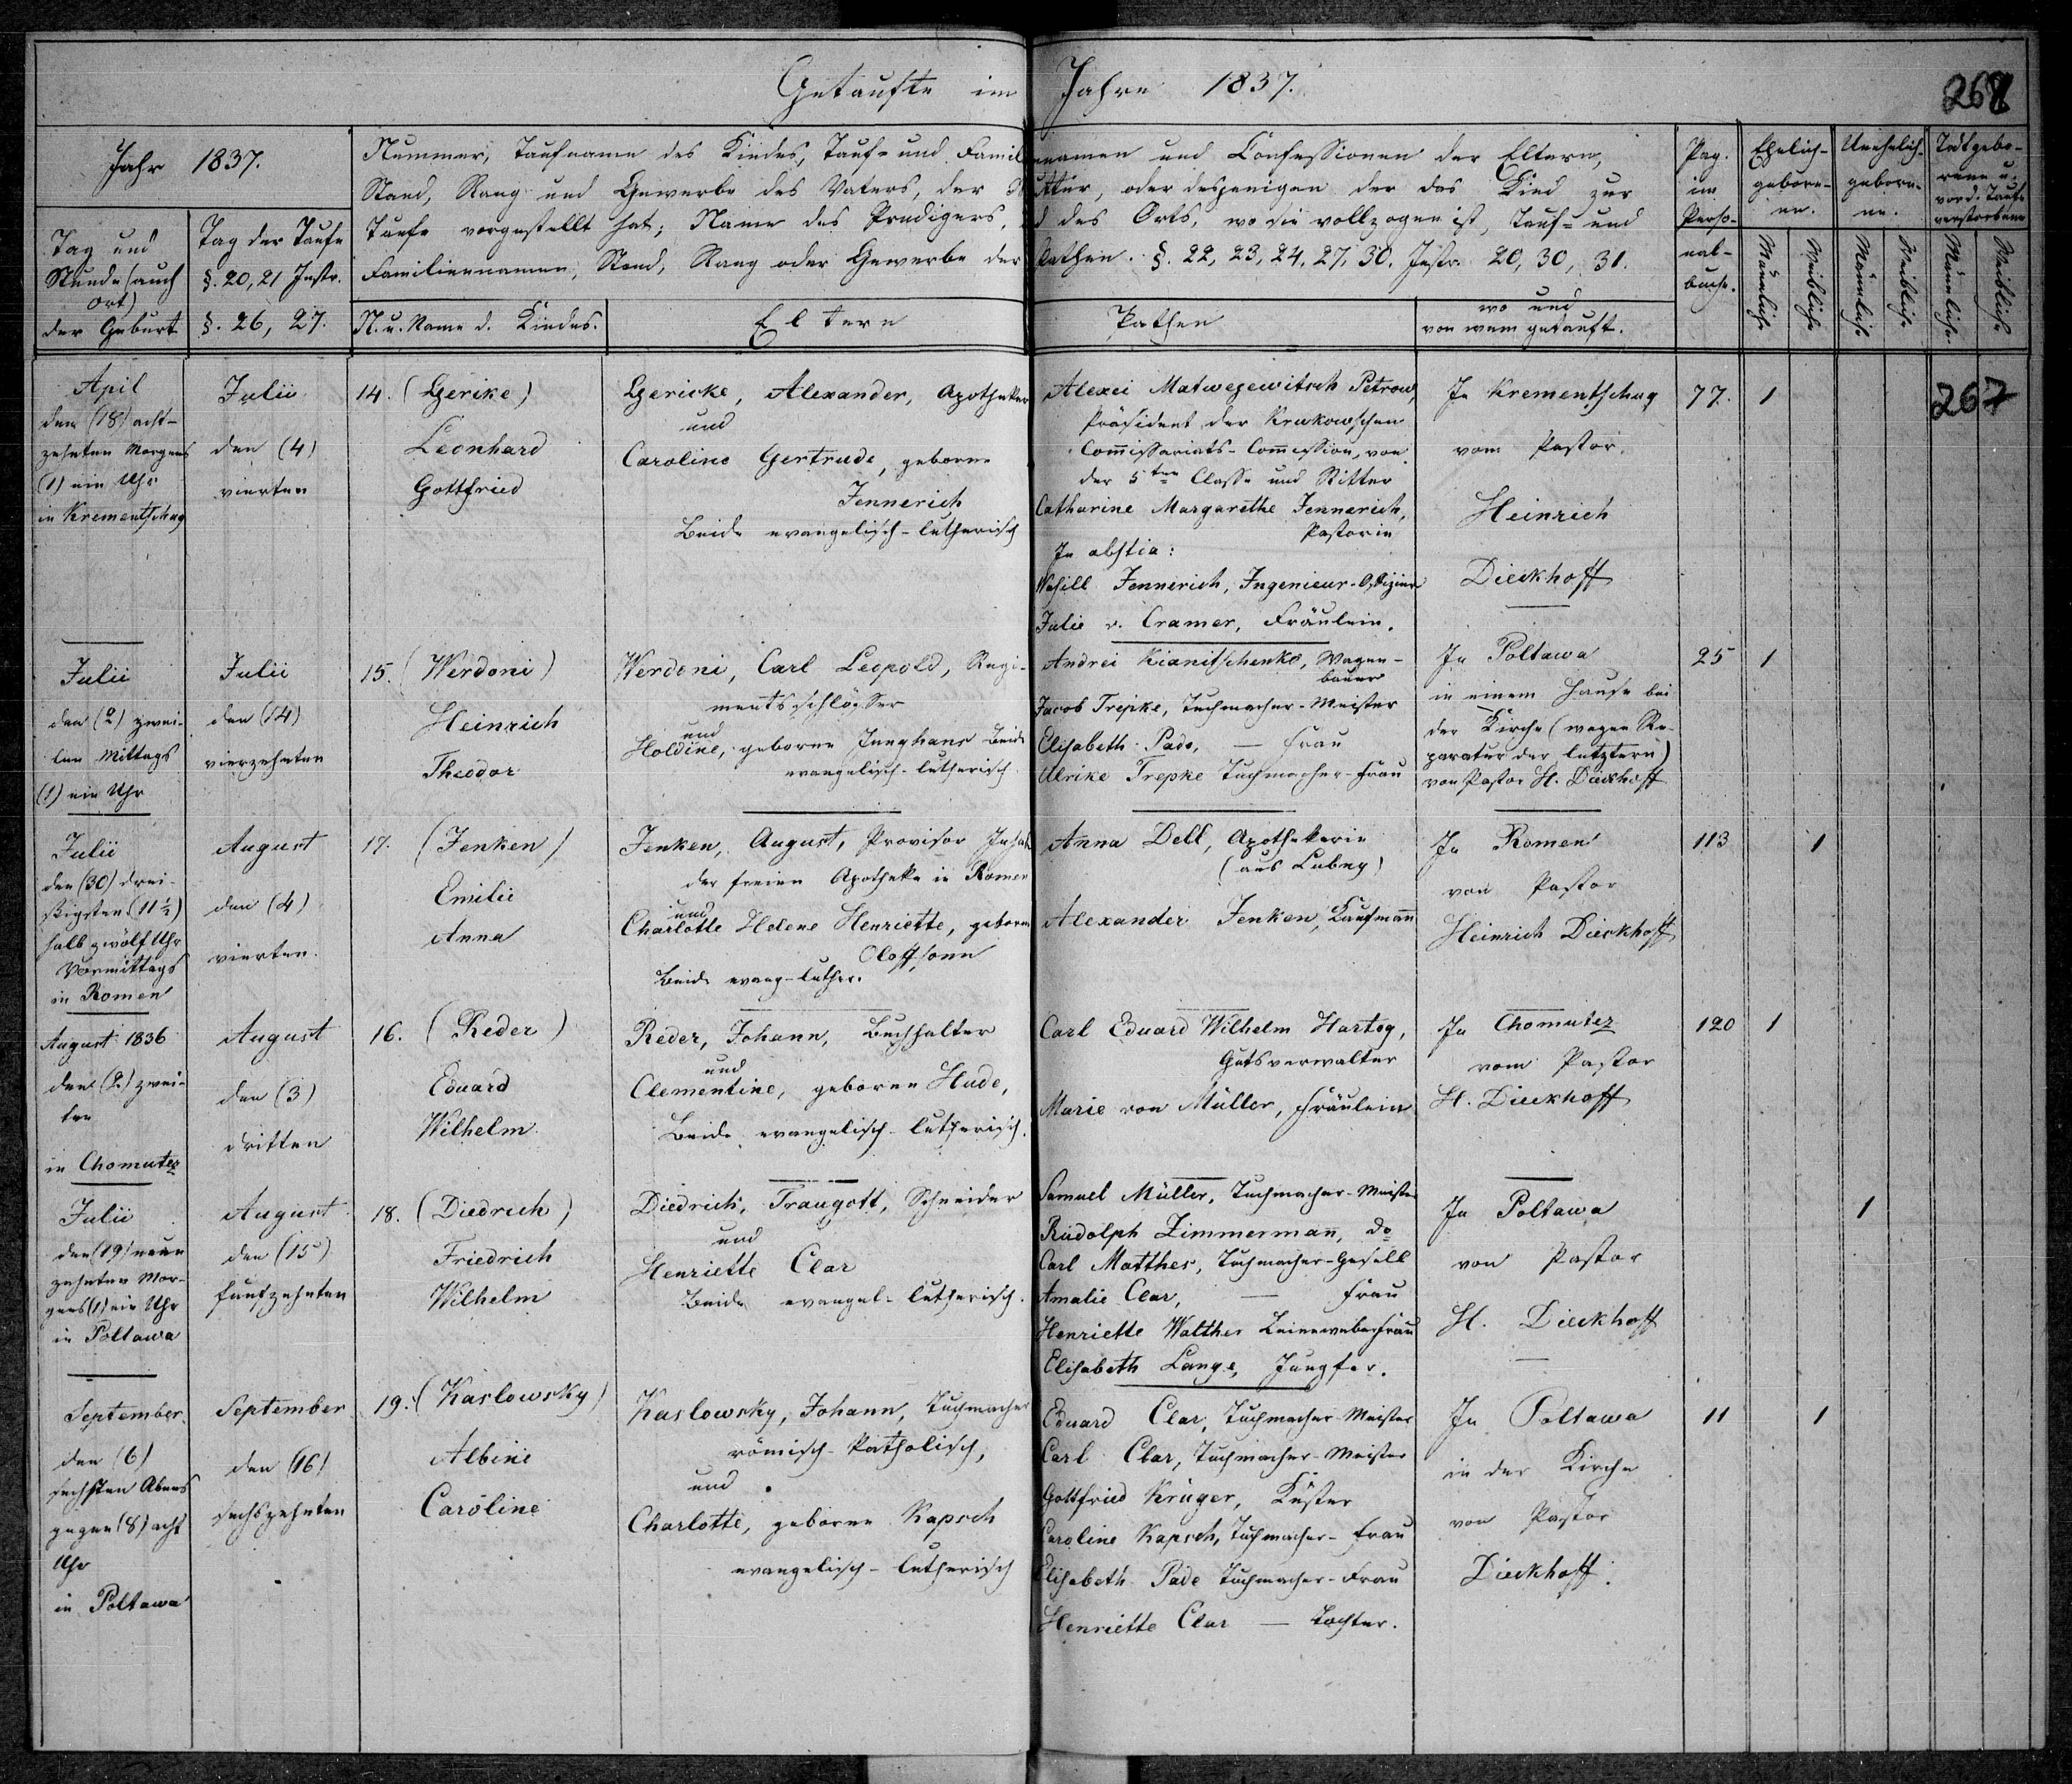 Getaufte im Jahre 1837.
268
Jahr 1837.
Nummer, Taufname des Kindes, Tauf- und Familiennamen und Confessionen der Eltern,
Stand, Rang und Gewerbe des Vaters, der Mutter, oder desjenigen der das Kind zur
Taufe vorgestellt hat; Name des Predigers, und des Orts, wo sie vollzogen ist, Tauf- und
Familiennamen, Stand, Rang oder Gewerbe der Pathen. §. 22, 23, 24, 27, 30. Instr. 20, 30, 31.
Tag und
Stunde (auch
Ort)
der Geburt
Tag der Taufe
§. 20, 21 Instr.
§. 26, 27.
N. u. Name d. Kindes.
Eltern
Pathen
wo und
von wem getauft.
Pag.
im
Perso-
nal-
buche.
Ehelich-
gebore-
ne.
Unehelich-
gebore-
ne.
Todtgebo-
rene u.
vor d. Taufe
verstorbene
Männliche
Weibliche
Männliche
Weibliche
Männliche
Weibliche
April
den (18) acht-
zehnten Morgens
(1) ein Uhr
in Krementschug
Julii
den (4)
vierten
14. (Gerike)
Leonhard
Gottfried
Gericke, Alexander, Apotheker
und
Caroline Gertrude, geborne
Jennerich
Beide evangelisch-lutherisch
Alexei Matwejewitsch Petrow,
Präsident der Krukowschen
Commissariats-Commession, von
der 5ten Classe und Ritter
Catharine Margarethe Jennerich,
Pastorin
In abstia:
Wasill Jennerich, Ingenieur-Offizier
Julie v. Cramer, Fräulein.
In Krementschug
vom Pastor
Heinrich
Dieckhoff
77.
1
267
Julii
den (2) zwei-
ten Mittags
(1) ein Uhr
Julii
den (14)
vierzehnten
15. (Werdoni)
Heinrich
Theodor
Werdoni, Carl Leopold, Regi-
mentsschlösser
und
Holdine, geborne Junghans Beide
evangelisch-lutherisch.
Andrei Kianitschenko, Wagen-
bauer
Jacob Trepke, Tuchmacher-Meister
Elisabeth Pade, — Frau
Ulrike Trepke Tuchmacher-Frau
In Poltawa
in einem Hause bei
der Kirche (wegen Re-
paratur der letztern)
von Pastor H. Dieckhoff
25
1
Julii
den (30) drei-
ßigsten (11 ½)
halb zwölf Uhr
Vormittags
in Romen
August
den (4)
vierten.
17. (Jenken)
Emilie
Anna
Jenken, August, Provisor
der freien Apotheke in Romen
und
Charlotte Helene Henriette, geborne
Oloffsonn
Beide evang-luther.
Anna Dell, Apothekerin
(aus Lubny)
Alexander Jenken, Kaufmann
In Romen
von Pastor
Heinrich Dieckhoff
113
1
August 1836
den (2) zwei-
ten
in Chomutez
August
den (3)
dritten
16. (Reder)
Eduard
Wilhelm
Reder, Johann, Buchhalter
und
Clementine, geborne Hude,
Beide evangelisch-lutherisch.
Carl Eduard Wilhelm Hartog,
Gutsverwalter
Marie von Müller, Fräulein
In Chomutez
vom Pastor
H. Dieckhoff
120
1
Julii
den (19) neun
zehnten Mor-
gens (1) ein Uhr
in Poltawa
August
den (15)
funfzehnten
18. (Diedrich)
Friedrich
Wilhelm
Diedrich, Traugott, Schneider
und
Henriette Clar
Beide evangel-lutherisch.
Samuel Müller, Tuchmacher-Meister
Rudolph Zimmermann, do
Carl Matthes, Tuchmacher-Gesell
Amalie Clar, — Frau
Henriette Walther Leineweberfrau
Elisabeth Lange, Jungfer.
In Poltawa
von Pastor
H. Dieckhoff
1
September
den (6)
sechsten Abens
gegen (8) acht
Uhr
in Poltawa
September
den (16)
sechszehnten
19. (Kaslowsky)
Albine
Caroline
Kaslowsky, Johann, Tuchmacher
römisch-katholisch,
und
Charlotte, geborne Kapsch
evangelisch-lutherisch
Eduard Clar, Tuchmacher-Meister
Carl Clar, Tuchmacher-Meister
Gottfried Krüger, Küster
Caroline Kapsch, Tuchmacher-Frau
Elisabeth Pade Tuchmacher-Frau
Henriette Clar — Tochter.
In Poltawa
in der Kirche
von Pastor
Dieckhoff.
11
1